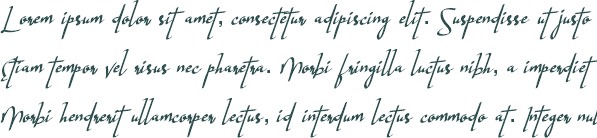 Lorem ipsum dolor sit amet, consectetur adipiscing elit. Suspendisse ut justo
Etiam tempor vel risus nec pharetra. Morbi fringilla luctus nibh, a imperdiet
Morbi hendrerit ullamcorper lectus, id interdum lectus commodo at. Integer nul